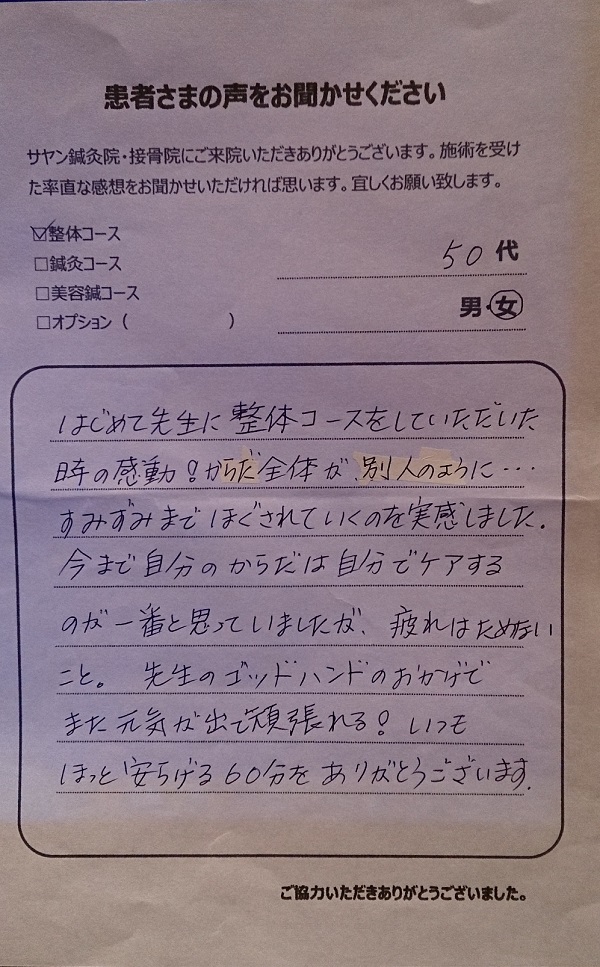 患者さまの声をお聞かせください
サヤン鍼灸院・接骨院にご来院いただきありがとうございます。施術を受け
た率直な感想をお聞かせいただければ思います。宜しくお願い致します。
☑整体コース
□鍼灸コース
50代
□美容鍼コース
男・女
□オプション（　　　　　）
はじめて先生に整体コースをしていただいた
時の感動！からだ全体が、別人のように…
すみずみまでほぐされていくのを実感しました。
今まで自分のからだは自分でケアする
のが一番と思っていましたが、疲れはためない
こと。先生のゴッドハンドのおかげで
また元気が出て頑張れる！いつも
ほっと安らげる60分をありがとうございます。
ご協力いただきありがとうございました。